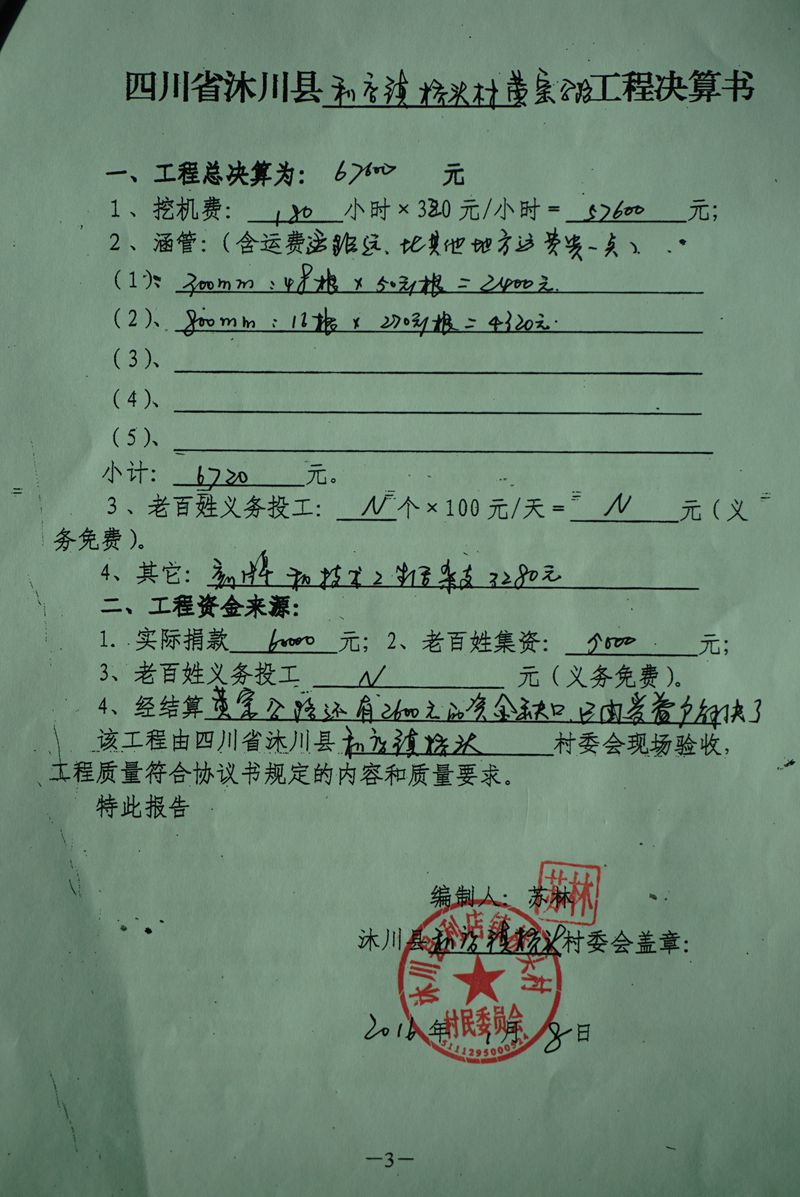 四川省沐川县利店镇桥头村黄家公路工程决算书
一、工程总决算为：67600元
1、挖机费：180小时×320元/小时＝57600元；
2、涵管：（含运费运距远、比其他地方运费贵一点）、
（1）：300mm：48根×50元/根＝2400元.
（2）、800mm：16根×270元/根＝4320元.
（3）、
（4）、
（5）、
小计：6720元。
3、老百姓义务投工：N个×100元/天＝N元（义
务免费）。
4、其它：刻牌和技术工生活杂支3280元
二、工程资金来源：
1. 实际捐款60000元；2、老百姓集资：5000元；
3、老百姓义务投工N元（义务免费）。
4、经结算黄家公路还有2600元的资金缺口，已由受益户解决了
该工程由四川省沐川县利店镇桥头村委会现场验收，
工程质量符合协议书规定的内容和质量要求。
特此报告
编制人：苏林
苏林
沐川县利店镇桥头村委会盖章：
沐川县利店镇桥头村
村民委员会
2016年1月8日
—3—